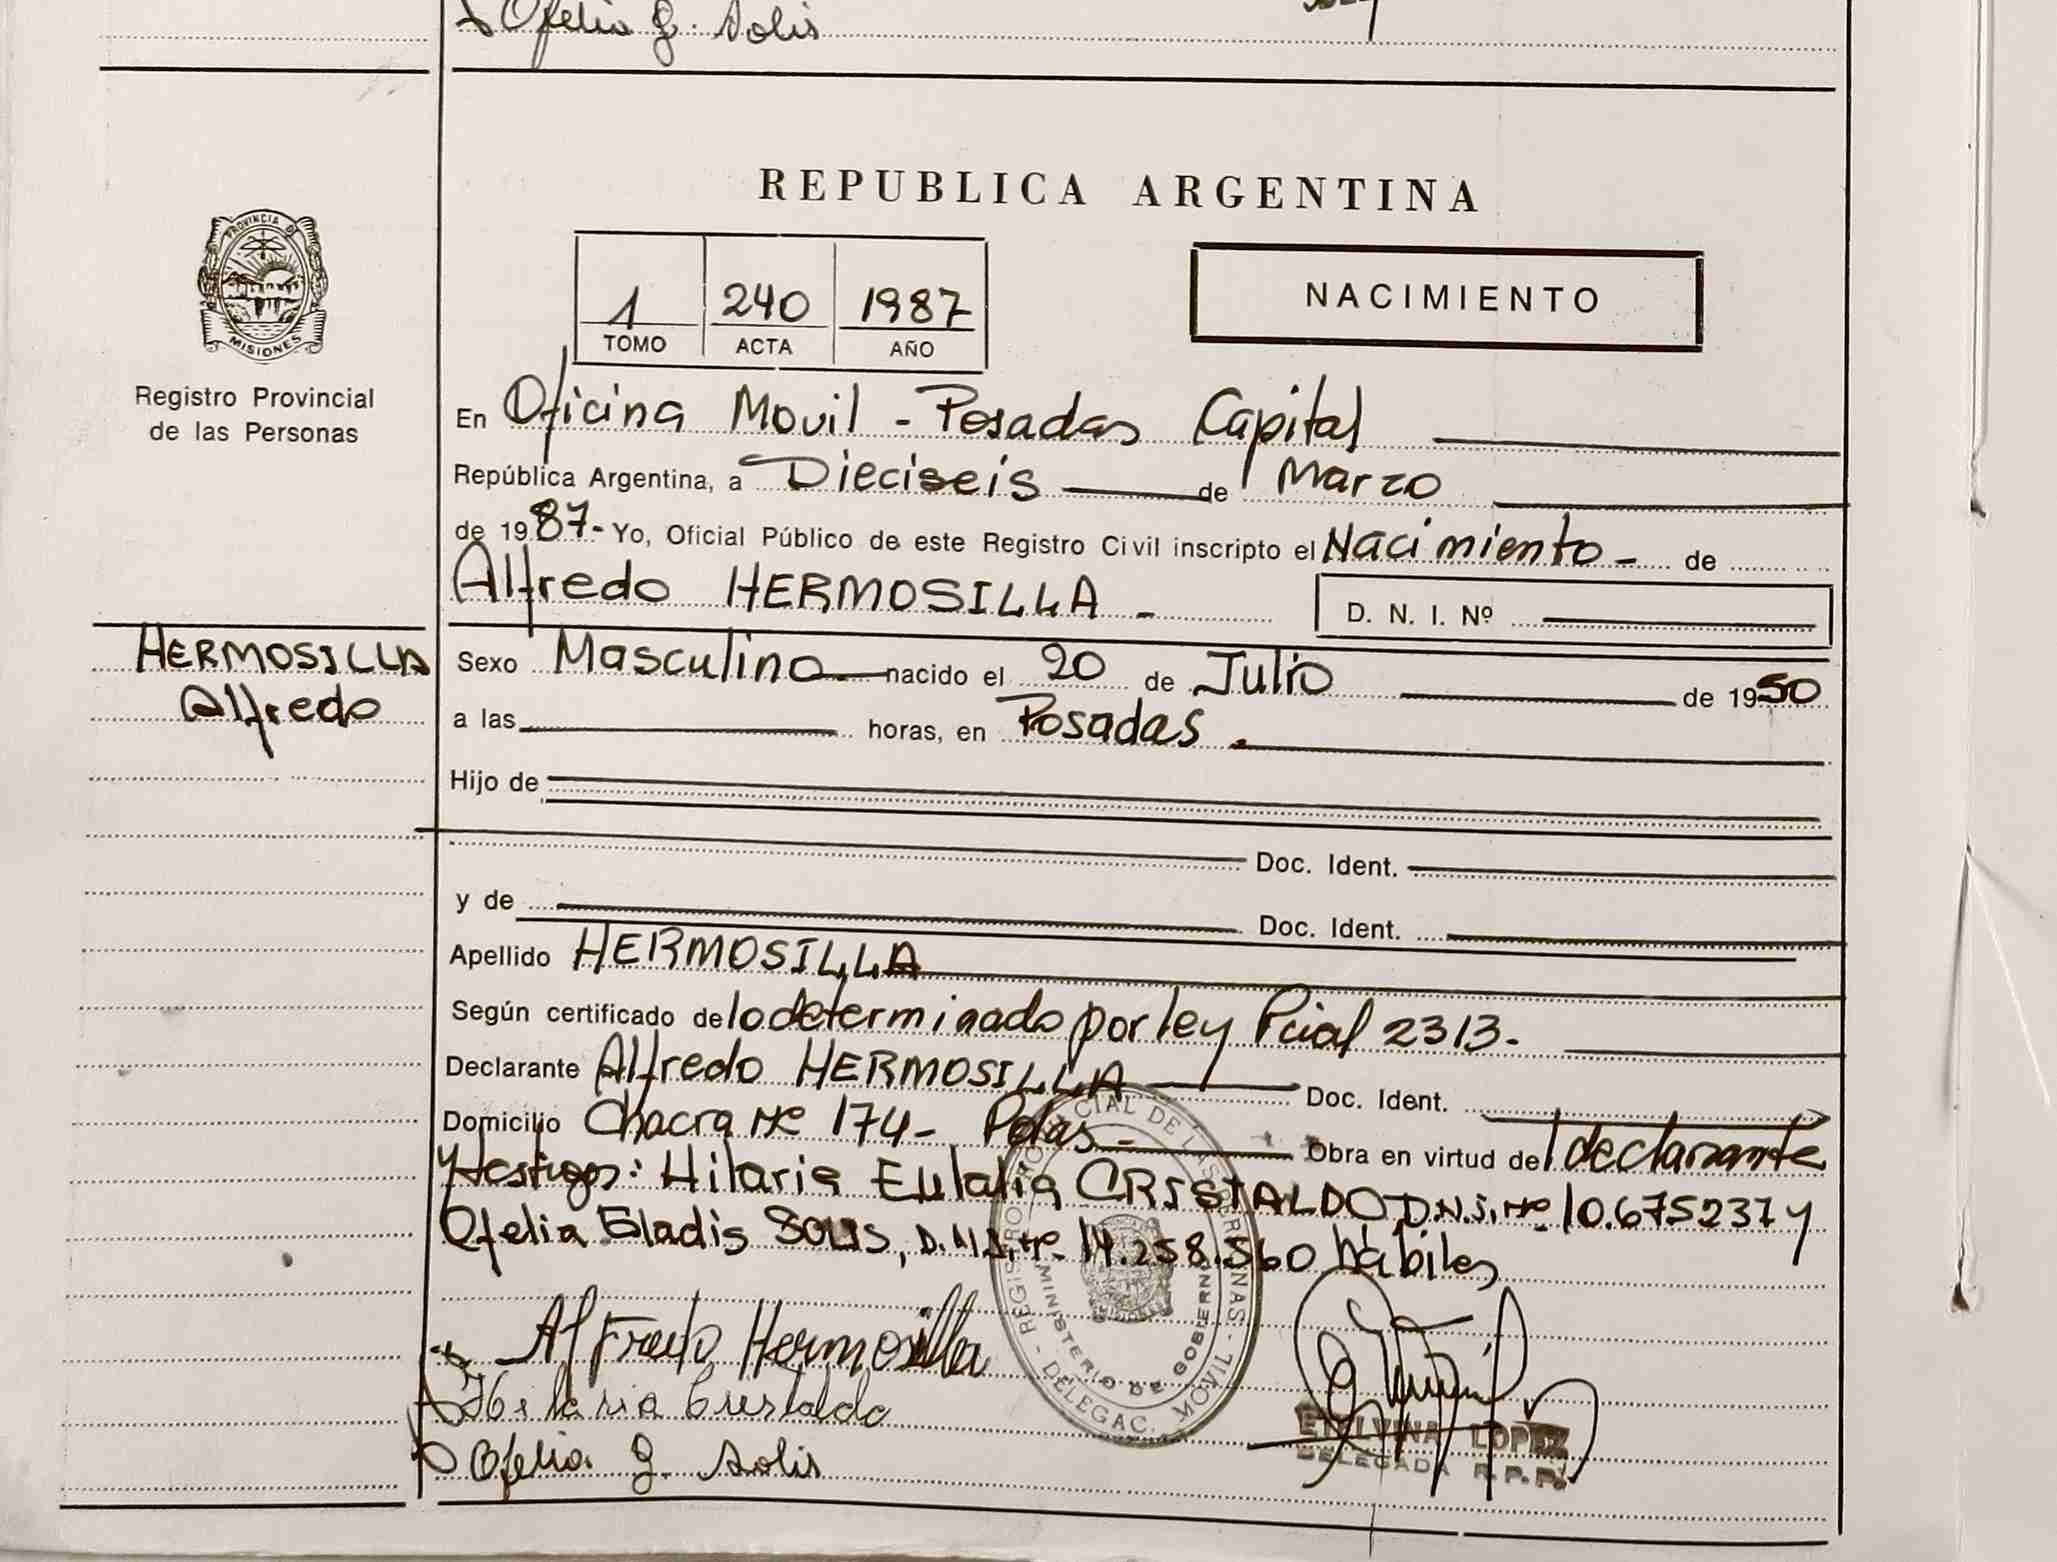 Ofelia G. Solis
REPUBLICA ARGENTINA
PROVINCIA D
MISIONES
Registro Provincial
de las Personas
1 240 1987
TOMO ACTA AÑO
NACIMIENTO
En Oficina Movil - Posadas Capital
República Argentina, a Dieciseis de Marzo
de 1987- Yo, Oficial Público de este Registro Civil inscripto el Nacimiento - de
Alfredo HERMOSILLA - D. N. I. Nº
HERMOSILLA
Alfredo
Sexo Masculino nacido el 20 de Julio de 1950
a las horas, en Posadas.
Hijo de
Doc. Ident.
y de Doc. Ident.
Apellido HERMOSILLA
Según certificado de lo determinado por ley Pcial 2313.-
Declarante Alfredo HERMOSILLA Doc. Ident.
Domicilio Chacra Nº 174- Pdas.- Obra en virtud del declarante
y testigos: Hilaria Eulalia CRISTALDO, D.N.I. Nº 10.675237 y
Ofelia Gladis SOLIS, D.N.I. Nº 14.258.560 hábiles
REGISTRO PROVINCIAL DE LAS PERSONAS - DELEGAC. MOVIL -
MINISTERIO DE GOBIERNO
Alfredo Hermosilla
Hilaria Cristaldo
Ofelia G. Solis
ETELVINA LOPEZ
DELEGADA R.P.P.